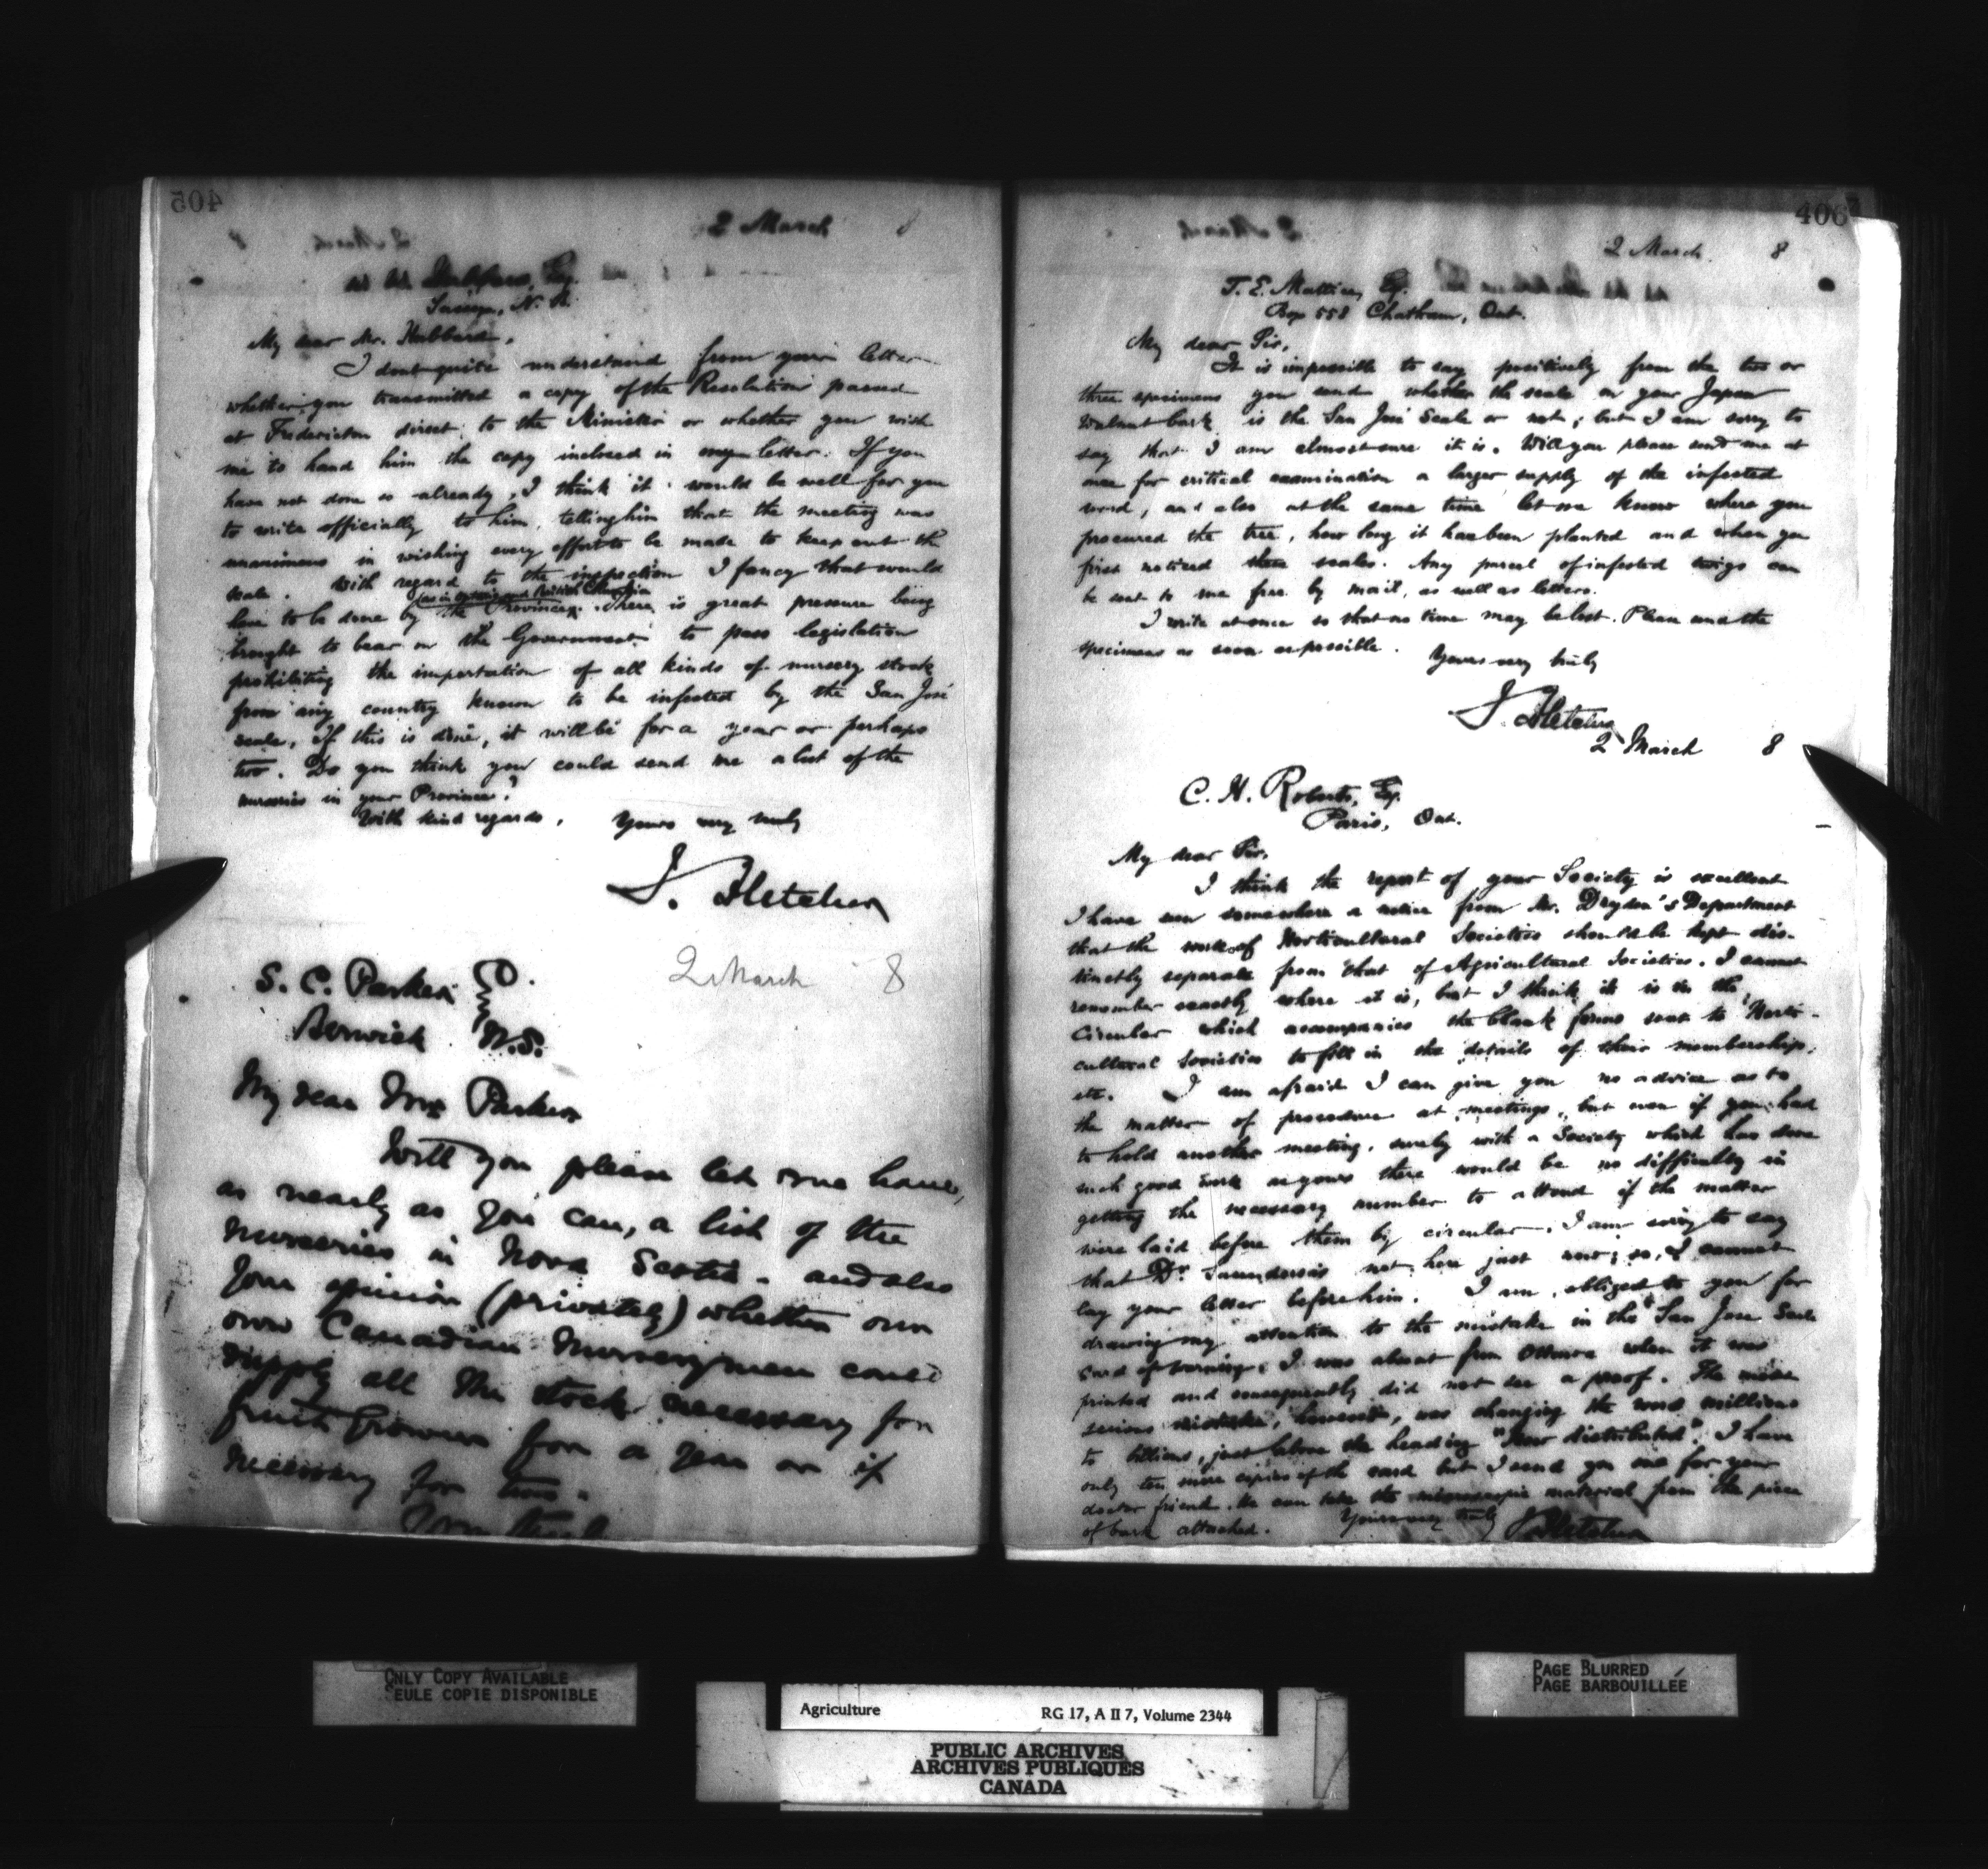 405
2 March 8
W. W. Hubbard, Esq.
Sussex, N. B.
My dear Mr. Hubbard,
I dont quite understand from your letter
whether you transmitted a copy of the Resolution passed
at Fredericton direct to the Minister or whether you wish
me to hand him the copy inclosed in my letter. If you
have not done so already, I think it would be well for you
to write officially to him, telling him that the meeting was
unanimous in wishing every effort to be made to keep out the
scale. With regard to the inspection I fancy that would
(as in Ontario and British Columbia
have to be done by the Provinces. There is great pressure being
brought to bear on the Government to pass legislation
prohibiting the importation of all kinds of nursery stock
from any country known to be infested by the San José
scale. If this is done, it will be for a year or perhaps
two. Do you think you could send me a list of the
nurseries in your Province?
With kind regards, Yours very truly
J. Fletcher
2 March 8
S. C. Parker
Berwick N.S.
My dear Mr Parker
Will you please let me have,
as nearly as you can, a list of the
nurseries in Nova Scotia - and also
your opinion (privately) whether our
own Canadian Nurserymen could
supply all the stock necessary for
fruit growers for a year or if
necessary for two.
Yours truly
406
2 March 8
T. E. Mattice, Esq.
Box 558 Chatham, Ont.
My dear Sir,
It is impossible to say positively from the two or
three specimens you send whether the scale on your Japan
walnut bark is the San José Scale or not; but I am sorry to
say that I am almost sure it is. Will you please send me at
once for critical examination a larger supply of the infested
wood, and also at the same time let me know where you
procured the tree, how long it has been planted and when you
first noticed these scales. Any parcel of infested twigs can
be sent to me free by mail, as well as letters.
I write at once so that no time may be lost. Please send the
specimens as soon as possible. Yours very truly
J. Fletcher
2 March 8
C. H. Roberts, Esq.
Paris, Ont.
My dear Sir,
I think the report of your Society is excellent
I have seen somewhere a notice from Mr. Dryden's Department
that the work of Horticultural Societies should be kept dis-
tinctly separate from that of Agricultural Societies. I cannot
remember exactly where it is, but I think it is in the
circular which accompanies the blank forms sent to Horti-
cultural Societies to fill in the details of their membership,
etc. I am afraid I can give you no advice as to
the matter of procedure at meetings, but even if you had
to hold another meeting, surely with a Society which has done
such good work as yours there would be no difficulty in
getting the necessary number to attend if the matter
were laid before them by circular. I am sorry to say
that Dr. Saunders is not here just now; so, I cannot
lay your letter before him. I am obliged to you for
drawing my attention to the mistake in the San Jose Scale
card of warning. I was absent from Ottawa when it was
printed and consequently did not see a proof. The more
serious mistake, however, was changing the word millions
to billions, just below the heading "How distributed". I have
only ten more copies of the card but I send you one for your
doctor friend. He can take the microscopic material from the piece
of bark attached. Yours very truly J. Fletcher
ONLY COPY AVAILABLE
SEULE COPIE DISPONIBLE
PAGE BLURRED
PAGE BARBOUILLÉE
Agriculture RG 17, A II 7, Volume 2344
PUBLIC ARCHIVES
ARCHIVES PUBLIQUES
CANADA